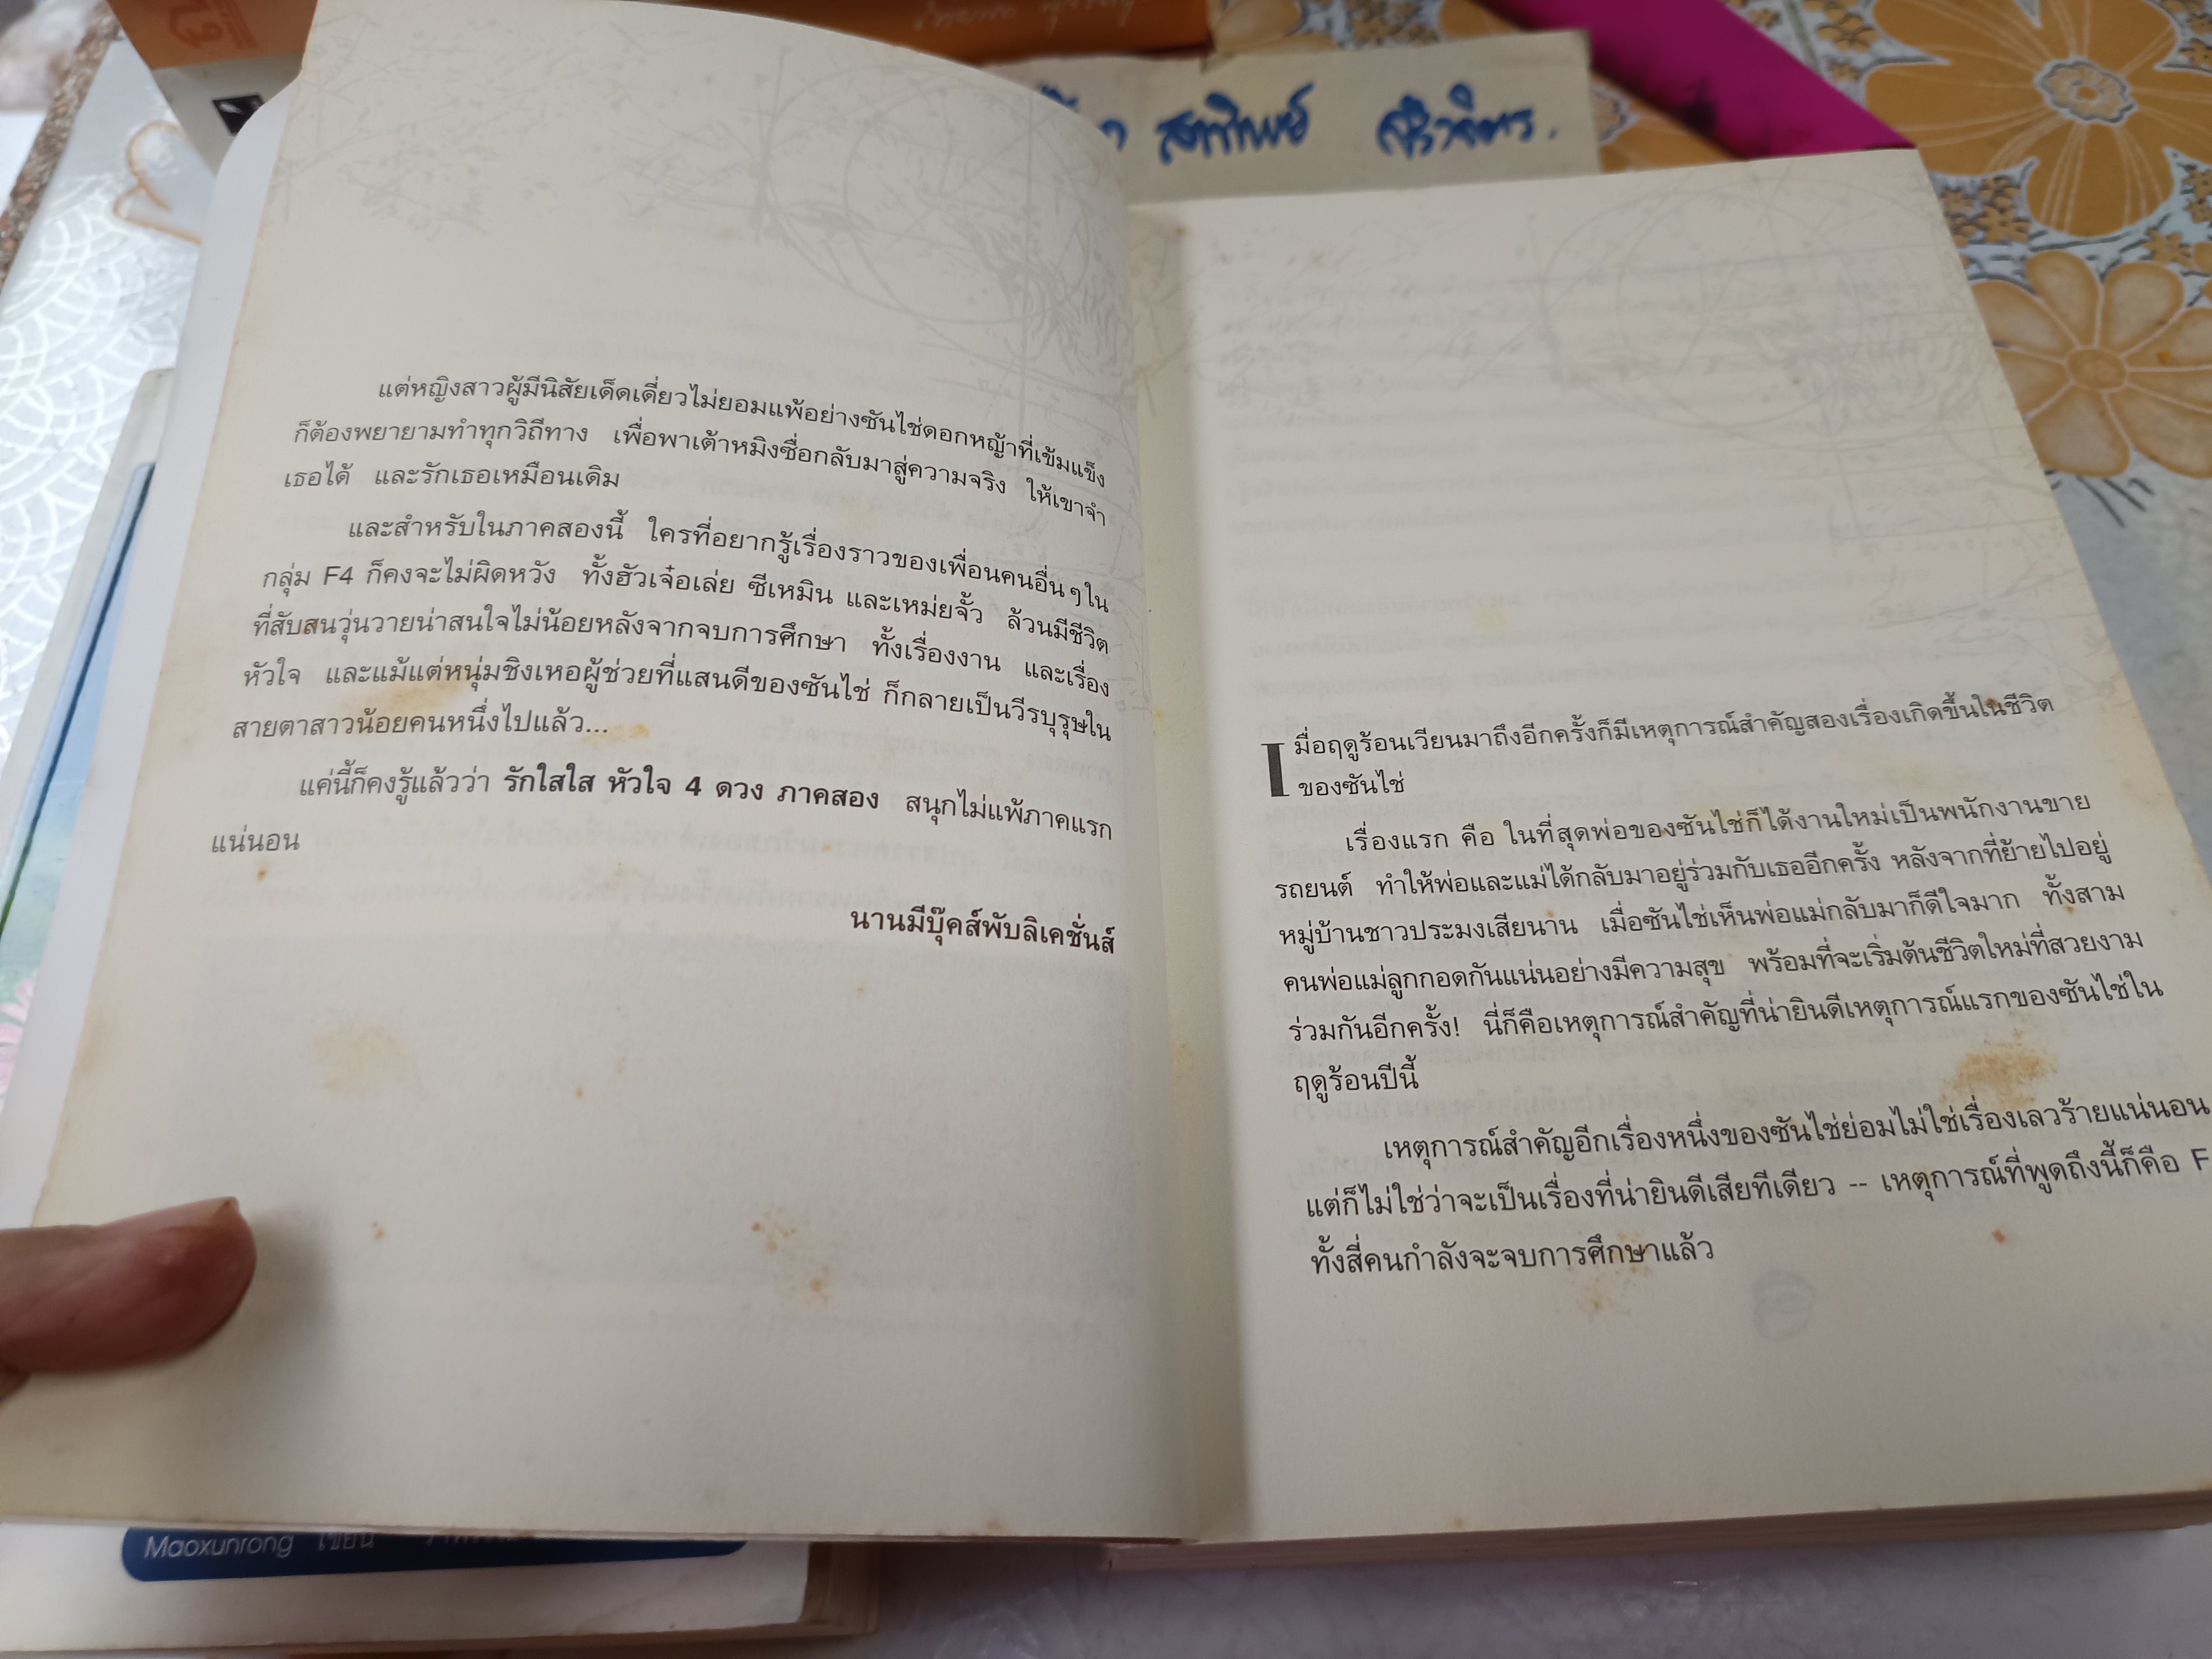 สุภาทิพย์ ศิริจิตร.
แต่หญิงสาวผู้มีนิสัยเด็ดเดี่ยวไม่ยอมแพ้อย่างซันไช่ดอกหญ้าที่เข้มแข็ง
ก็ต้องพยายามทำทุกวิถีทาง เพื่อพาเต้าหมิงซื่อกลับมาสู่ความจริง ให้เขาจำ
เธอได้ และรักเธอเหมือนเดิม
และสำหรับในภาคสองนี้ ใครที่อยากรู้เรื่องราวของเพื่อนคนอื่นๆใน
กลุ่ม F4 ก็คงจะไม่ผิดหวัง ทั้งฮัวเจ๋อเล่ย ซีเหมิน และเหม่ยจั้ว ล้วนมีชีวิต
ที่สับสนวุ่นวายน่าสนใจไม่น้อยหลังจากจบการศึกษา ทั้งเรื่องงาน และเรื่อง
หัวใจ และแม้แต่หนุ่มชิงเหอผู้ช่วยที่แสนดีของซันไช่ ก็กลายเป็นวีรบุรุษใน
สายตาสาวน้อยคนหนึ่งไปแล้ว...
แค่นี้ก็คงรู้แล้วว่า รักใสใส หัวใจ 4 ดวง ภาคสอง สนุกไม่แพ้ภาคแรก
แน่นอน
นานมีบุ๊คส์พับลิเคชั่นส์
เมื่อฤดูร้อนเวียนมาถึงอีกครั้งก็มีเหตุการณ์สำคัญสองเรื่องเกิดขึ้นในชีวิต
ของซันไช่
เรื่องแรก คือ ในที่สุดพ่อของซันไช่ก็ได้งานใหม่เป็นพนักงานขาย
รถยนต์ ทำให้พ่อและแม่ได้กลับมาอยู่ร่วมกับเธออีกครั้ง หลังจากที่ย้ายไปอยู่
หมู่บ้านชาวประมงเสียนาน เมื่อซันไช่เห็นพ่อแม่กลับมาก็ดีใจมาก ทั้งสาม
คนพ่อแม่ลูกกอดกันแน่นอย่างมีความสุข พร้อมที่จะเริ่มต้นชีวิตใหม่ที่สวยงาม
ร่วมกันอีกครั้ง! นี่ก็คือเหตุการณ์สำคัญที่น่ายินดีเหตุการณ์แรกของซันไช่ใน
ฤดูร้อนปีนี้
เหตุการณ์สำคัญอีกเรื่องหนึ่งของซันไช่ย่อมไม่ใช่เรื่องเลวร้ายแน่นอน
แต่ก็ไม่ใช่ว่าจะเป็นเรื่องที่น่ายินดีเสียทีเดียว -- เหตุการณ์ที่พูดถึงนี้ก็คือ F
ทั้งสี่คนกำลังจะจบการศึกษาแล้ว
Maoxunrong เขียน